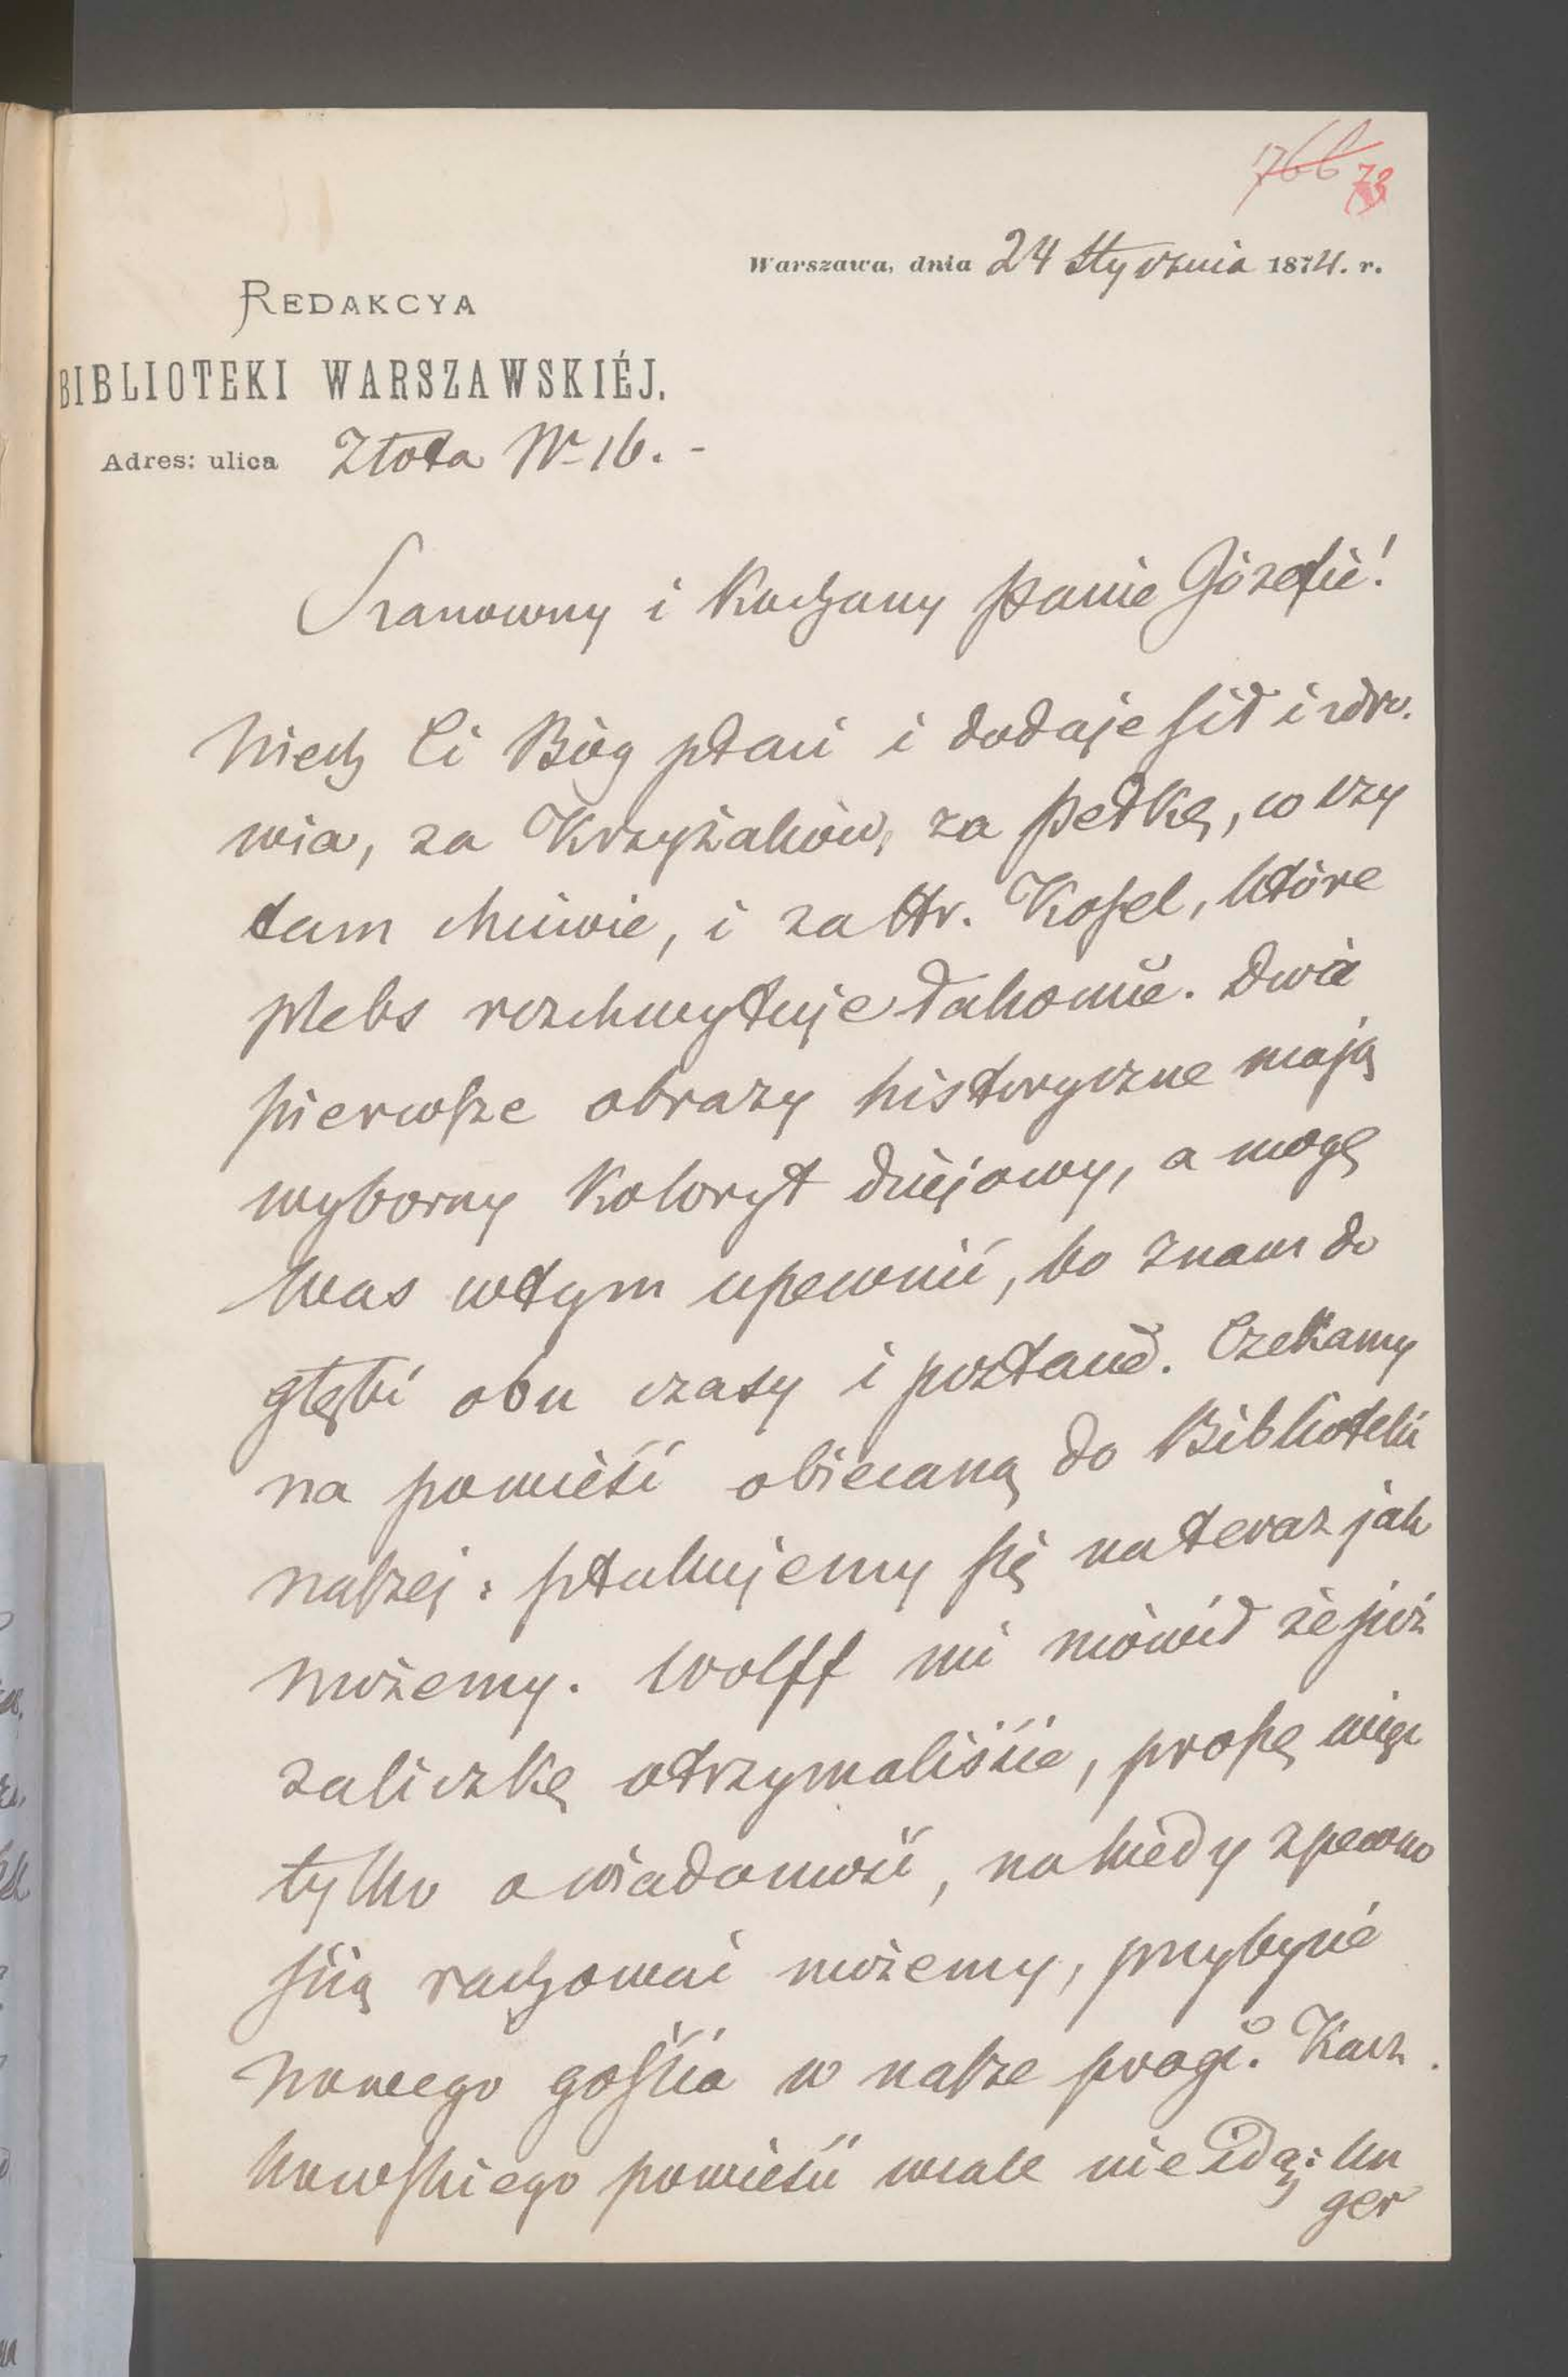 766 73
Warszawa, dnia 24 Stycznia 1874. r.
REDAKCYA
BIBLIOTEKI WARSZAWSKIÉJ.
Adres: ulica Złota Nr 16. -
Szanowny i Kochany Panie Józefie!
Niech Ci Bóg płaci i dodaje sił i zdro-
wia, za Krzyżaków, za Pełkę, co czy
tam chciwie, i za Hr. Kosel, które
plebs rozchwytuje łakomie. Dwa
pierwsze obrazy historyczne mają
wyborny koloryt dziejowy, a mogę
Was w tym upewnić, bo znam do
głębi obu czasy i postacie. Czekamy
na powieść obiecaną do Biblioteki
naszej: sztukujemy się na teraz jak
możemy. Wolff mi mówił że już
zaliczkę otrzymaliście, proszę więc
tylko o wiadomość, na kiedy zpewno
ścią rachować możemy, przybycie
nowego gościa w nasze progi. Kacz
kowskiego powieści wcale nie idą: Un
ger